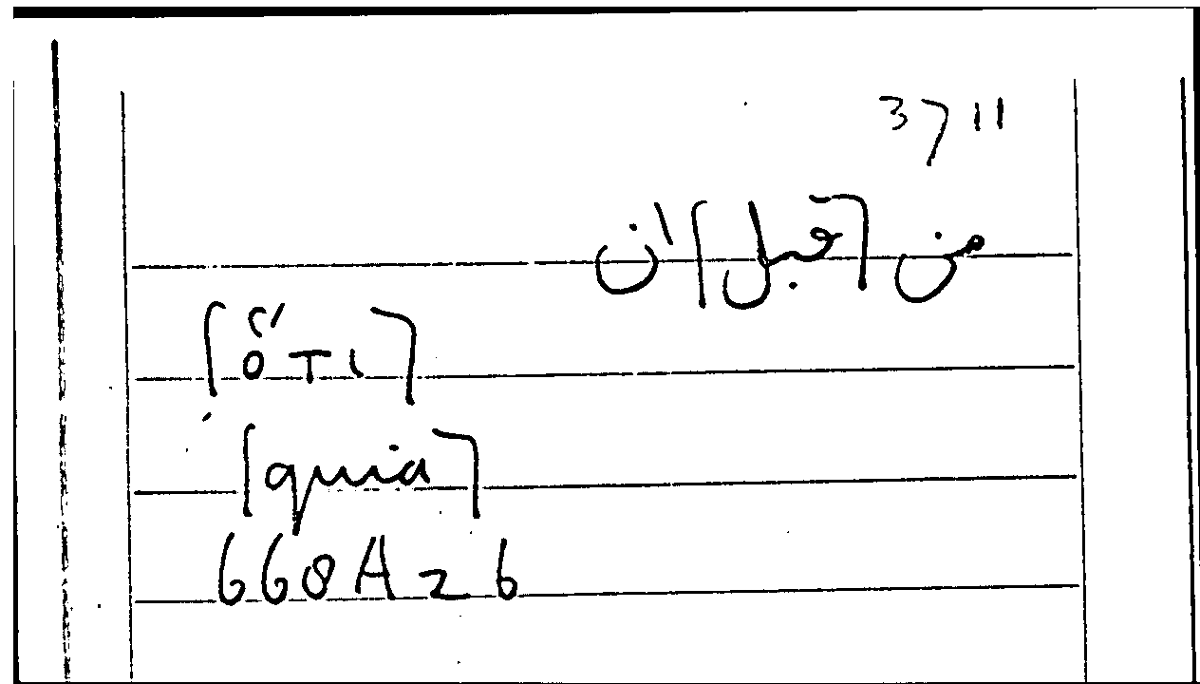 3711
من [قبل] ان
[ὅτι]
[quia]
668A26